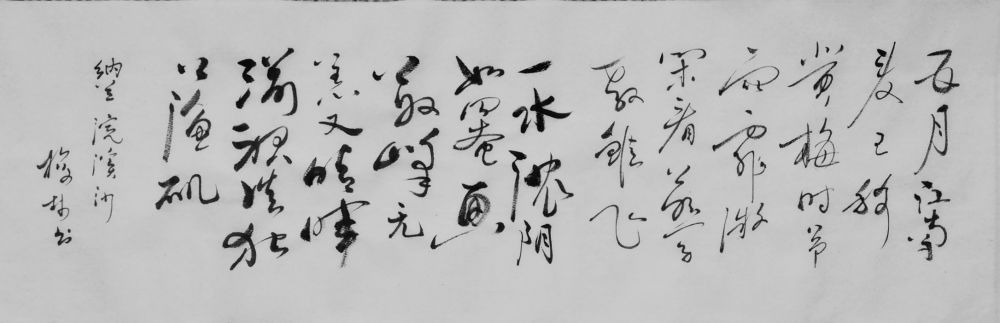 五月江南
麦已稀
黄梅时节
雨霏微
闲看燕子
教雏飞
一水浓阴
如罨画
数峰无
恙又晴晖
湔裙谁独
上渔矶
纳兰浣溪沙
书